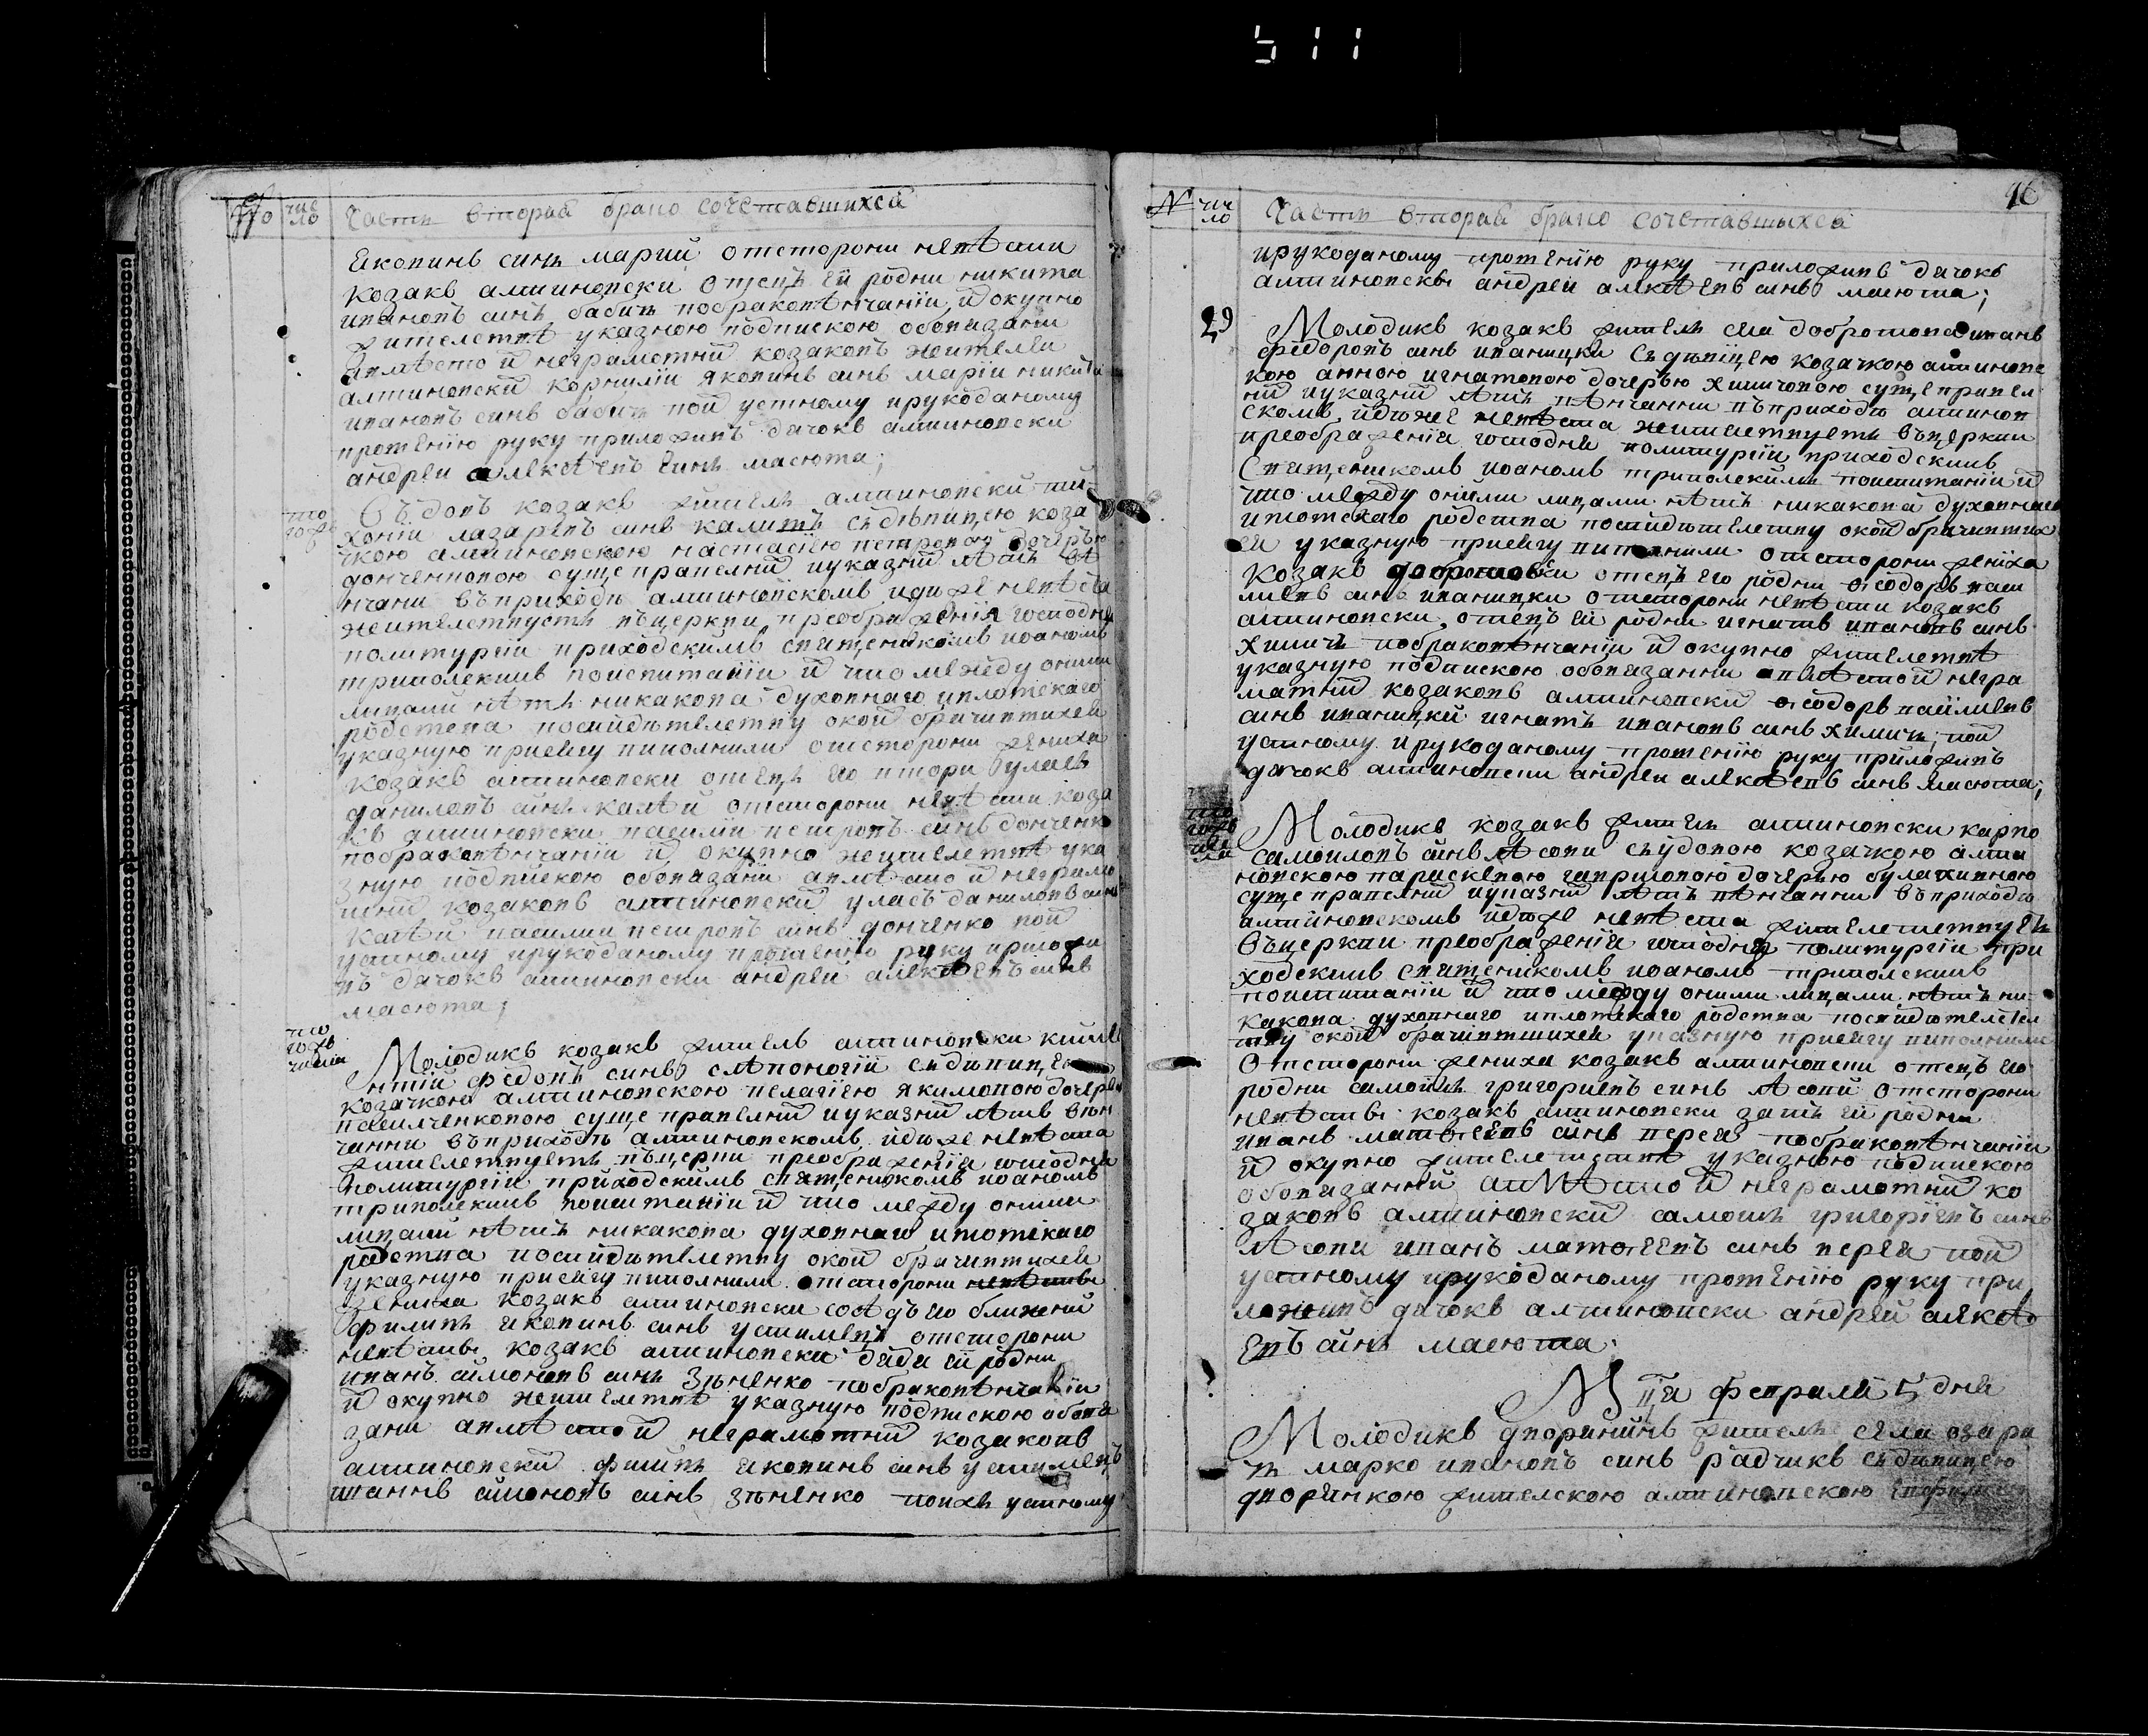 511
№ чис
ло Часть вторая брано сочетавшихся
яковинь синъ марий отстороны невѣсти
козакъ алтиновски отецъ ей родни никита
ивановъ синъ бабичъ побраковѣнчаніи и окупно
жителствѣ указною подпискою обовязани
авмѣсто и неграмотній козаковъ жителей
алтиновскій корнилій яковинь синъ марій никита
ивановъ синъ бабичъ пой устному ирукоданому
прошенію руку приложивъ дячокъ алтиновски
андреи алексѣевъ синъ масюта;
того
жъ
Удовъ козакъ житель алтиновски ти
хоній лазаревъ синъ калитъ сьдѣвицею коза
чкою алтиновскою настасіею петровою дочерью
донченковою суще правелній иуказній лѣтъ вѣ
нчани въприходѣ алтиновскомъ идѣже невѣста
жителствуеть въцеркви преображенія господня
политургіи приходскимъ священникомъ иоаномъ
триполскимъ поиспитаніи и что между оними
лицами нѣтъ никакова духовнаго иплотскаго
родства посвидѣтелству окой брачившихся
указную присягу виполнили отстороны жениха
козакъ алтиновски отецъ его втори уласъ
даниловъ синъ калѣй отстороны невѣсти коза
къ алтиновски василій петровъ синъ донченко
побраковѣнчаніи и окупно жителствѣ ука
зную подпискою обовязани авмѣсто и неграмо
тній козаковъ алтиновскій уласъ даниловъ синъ
калѣй василій петровъ синъ донченко пой
устному ирукоданому прошенію руку приложи
въ дячокъ алтиновски андреи алексѣевъ синъ
масюта;
того жъ
числа
Молодикъ козакъ житель алтиновски
федовъ синъ сьдѣвицею
козачкою алтиновскою пелагіею якимовою дочерю
суще правелній иуказній лѣтъ вѣн
чанни въприходѣ алтиновскомъ идѣже невѣста
жителствуеть въцеркви преображенія господня
политургіи приходскимъ священникомъ иоаномъ
триполскимъ поиспитаніи и что между оними
лицами нѣтъ никакова духовнаго иплотскаго
родства посвидѣтелству окой брачившихся
указную присягу виполнили отстороны невѣсти
жениха козакъ алтиновски сосѣдъ его ближній
филипъ яковинь синъ отстороны
невѣсти козакъ алтиновски дядя ей родни
иванъ симоновъ синъ зѣненко побраковѣнчаніи
и окупно жителствѣ указную подпискою обовя
зани авмѣсто и неграмотній козаковъ
алтиновскій филипъ яковинь синъ
иваннъ симоновъ синъ зѣненко поихъ устному
96
№ чис
ло Часть вторая брано сочетавшыхся
ирукоданому прошенію руку приложивъ дячокъ
алтиновски андреи алексѣевъ синъ масюта;
29 Молодикъ козакъ житель села добротова иванъ
федоровъ синъ иваницки сьдѣвицею козачкою алтиновс
кою анною игнатовою дочерью химичовою суще правел
ній иуказній лѣтъ вѣнчанни въприходѣ алтинов
скомъ идѣже невѣста жителствуеть въцеркви
преображенія господня политургіи приходскимъ
священникомъ иоаномъ триполскимъ поиспитаніи и
что между оними лицами нѣтъ никакова духовнаго
иплотскаго родства посвидѣтелству окой брачивших
ся указную присягу виполнили отстороны жениха
козакъ добротовски отецъ его родни ѳеодоръ васи
лиевъ синъ иваницки отстороны невѣсти козакъ
алтиновски отецъ ей родни игнатъ ивановъ синъ
химичъ побраковѣнчаніи и окупно жителствѣ
указную подпискою обовязанни авмѣсто и негра
матній козаковъ алтиновскій ѳеодоръ васйлиевъ
синъ иваницкій игнатъ ивановъ синъ химичъ пой
устному ирукоданому прошенію руку приложивъ
дячокъ алтиновски андреи алексѣевъ синъ масюта;
того жъ
числа
Молодикъ козакъ житель алтиновски карпо
самоиловъ синъ лѣсови сьудовою козачкою алти
новскою парискевою гавриловою дочерью
суще правелній иуказній лѣтъ вѣнчанни въприходѣ
алтиновскомъ идѣже невѣста жителствуеть
въцеркви преображенія господня политургіи при
ходскимъ священикомъ иоаномъ триполскимъ
поиспитаніи и что между оними лицами нѣтъ ни
какова духовнаго иплотскаго родства посвидѣтелст
ву окой брачившихся указную присягу виполнили
Отстороны жениха козакъ алтиновски отецъ его
родни самоилъ григориевъ синъ лѣсовй отстороны
невѣсты козакъ алтиновски зять ей родни
иванъ матѳеевъ синъ переа побраковѣнчаніи
и окупно жителствѣ указную подпискою
обовязаннй авмѣсто и неграмотній ко
заковъ алтиновскій самоилъ григоріевъ синъ
лѣсови иванъ матѳеевъ синъ переа пой
устному ирукоданому прошенію руку при
ложивъ дячокъ алтиновски андрей алексѣ
евъ синъ масюта.
Мца февраля 5 дня
Молодикъ дворянинъ житель села озари
чъ марко ивановъ синъ радчикъ сьдѣвицею
дворянкою жителскою алтиновскою